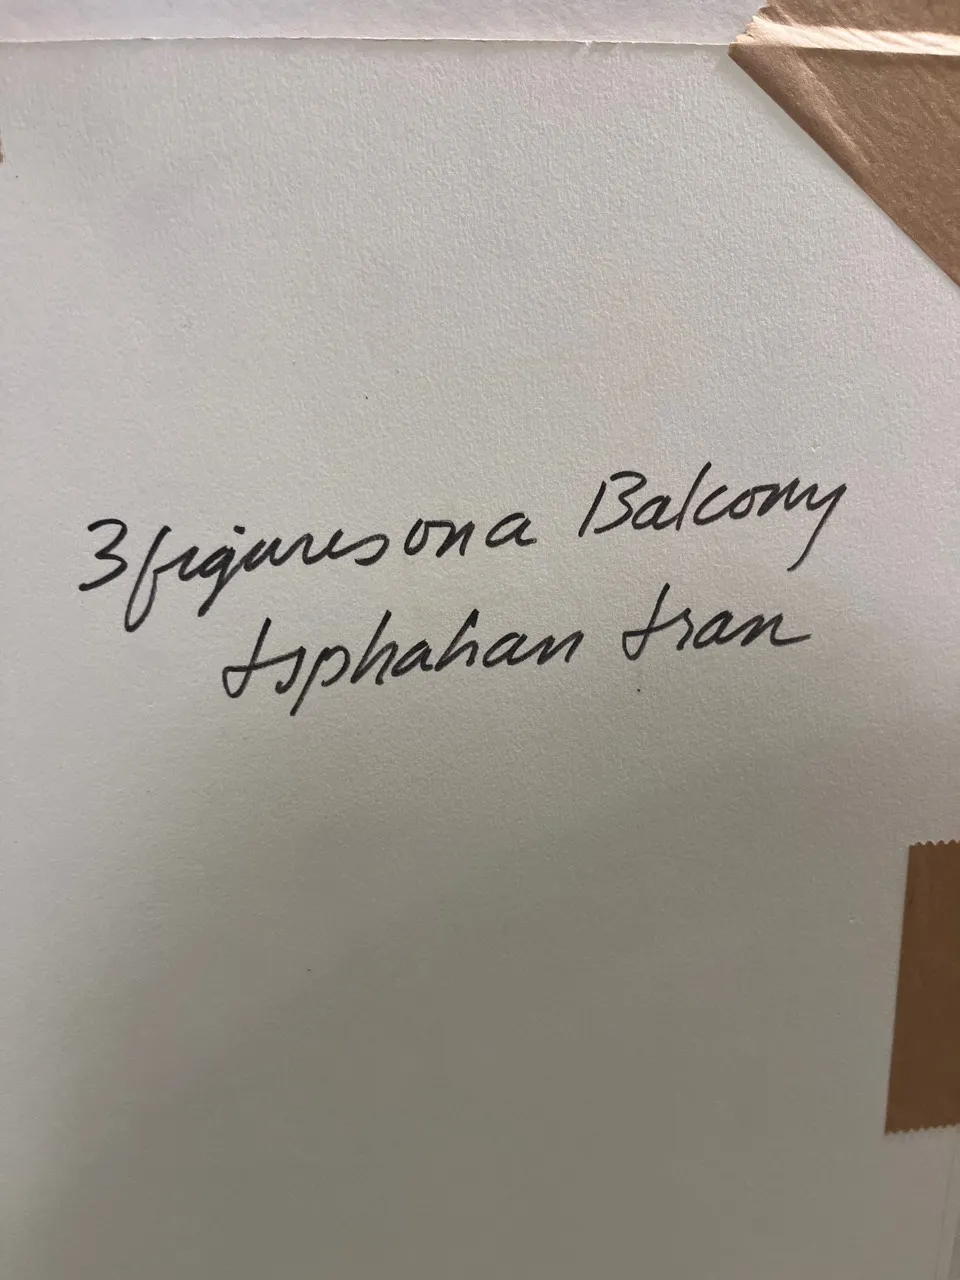 3 figures on a Balcony
Isphahan Iran